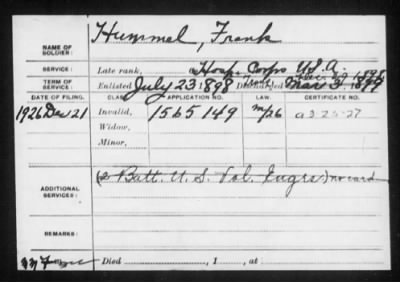 Hummel, Frank
NAME OF SOLDIER:
SERVICE: Late rank, Hosp. Corps U.S.A.
TERM OF SERVICE: Enlisted July 23 1898 Discharged Mar 3, 1899
DATE OF FILING. CLASS. APPLICATION NO. LAW. CERTIFICATE NO.
1926 Dec 21 Invalid, 1565149
Widow,
Minor,
ADDITIONAL SERVICES: Batt. U. S. Vol. Engrs) no card
REMARKS:
Died , 1 , at